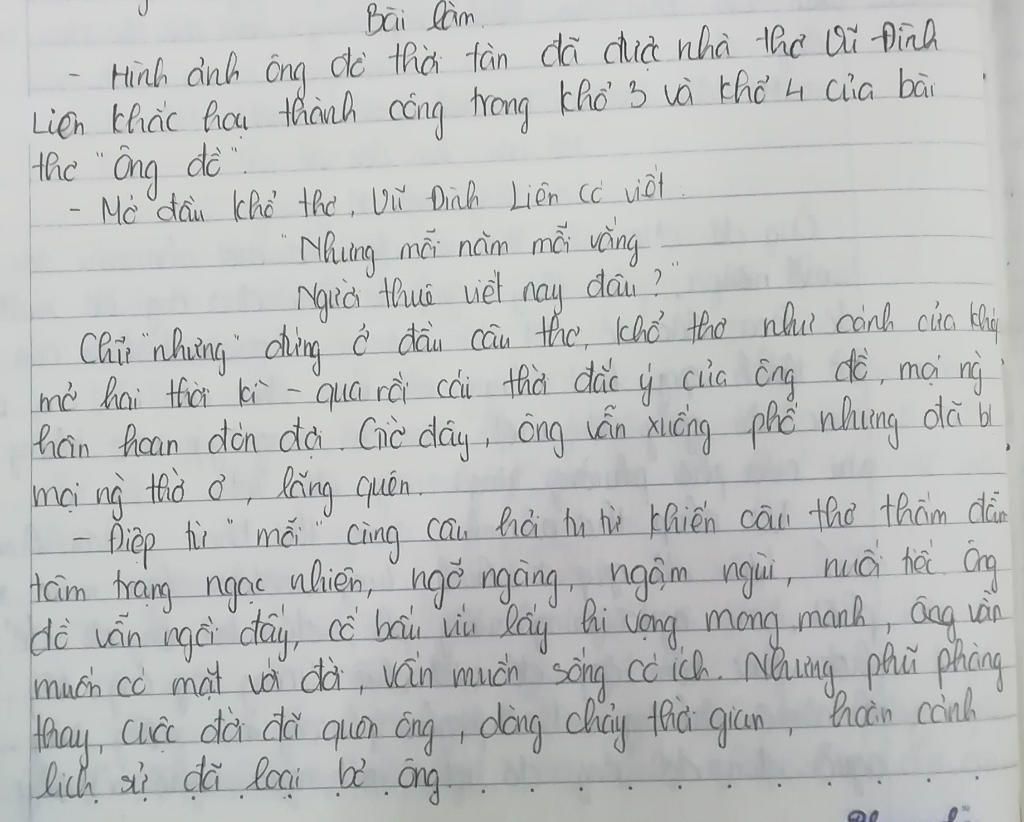 Bài làm.
- Hình ảnh ông đồ thời tàn đã được nhà thơ Vũ Đình
Liên khắc hoạ thành công trong khổ 3 và khổ 4 của bài
thơ "Ông đồ".
- Mở đầu khổ thơ, Vũ Đình Liên có viết.
"Nhưng mỗi năm mỗi vắng
Người thuê viết nay đâu?"
Chữ "nhưng" đứng ở đầu câu thơ, khổ thơ như cánh cửa khép
mở hai thời kì - qua rồi cái thời đắc ý của ông đồ, mọi ng`
hân hoan đón đợi. Giờ đây, ông vẫn xuống phố nhưng đã bị
mọi ng` thờ ơ, lãng quên.
- Điệp từ "mỗi" cùng câu hỏi tu từ khiến câu thơ thấm đẫm
tâm trạng ngạc nhiên, ngỡ ngàng, ngậm ngùi, nuối tiếc. Ông
đồ vẫn ngồi đấy, cố bấu víu lấy hi vọng mong manh, ông vẫn
muốn có mặt với đời, vẫn muốn sống có ích. Nhưng phũ phàng
thay, cuộc đời đã quên ông, dòng chảy thời gian, hoàn cảnh
lịch sử đã loại bỏ ông.